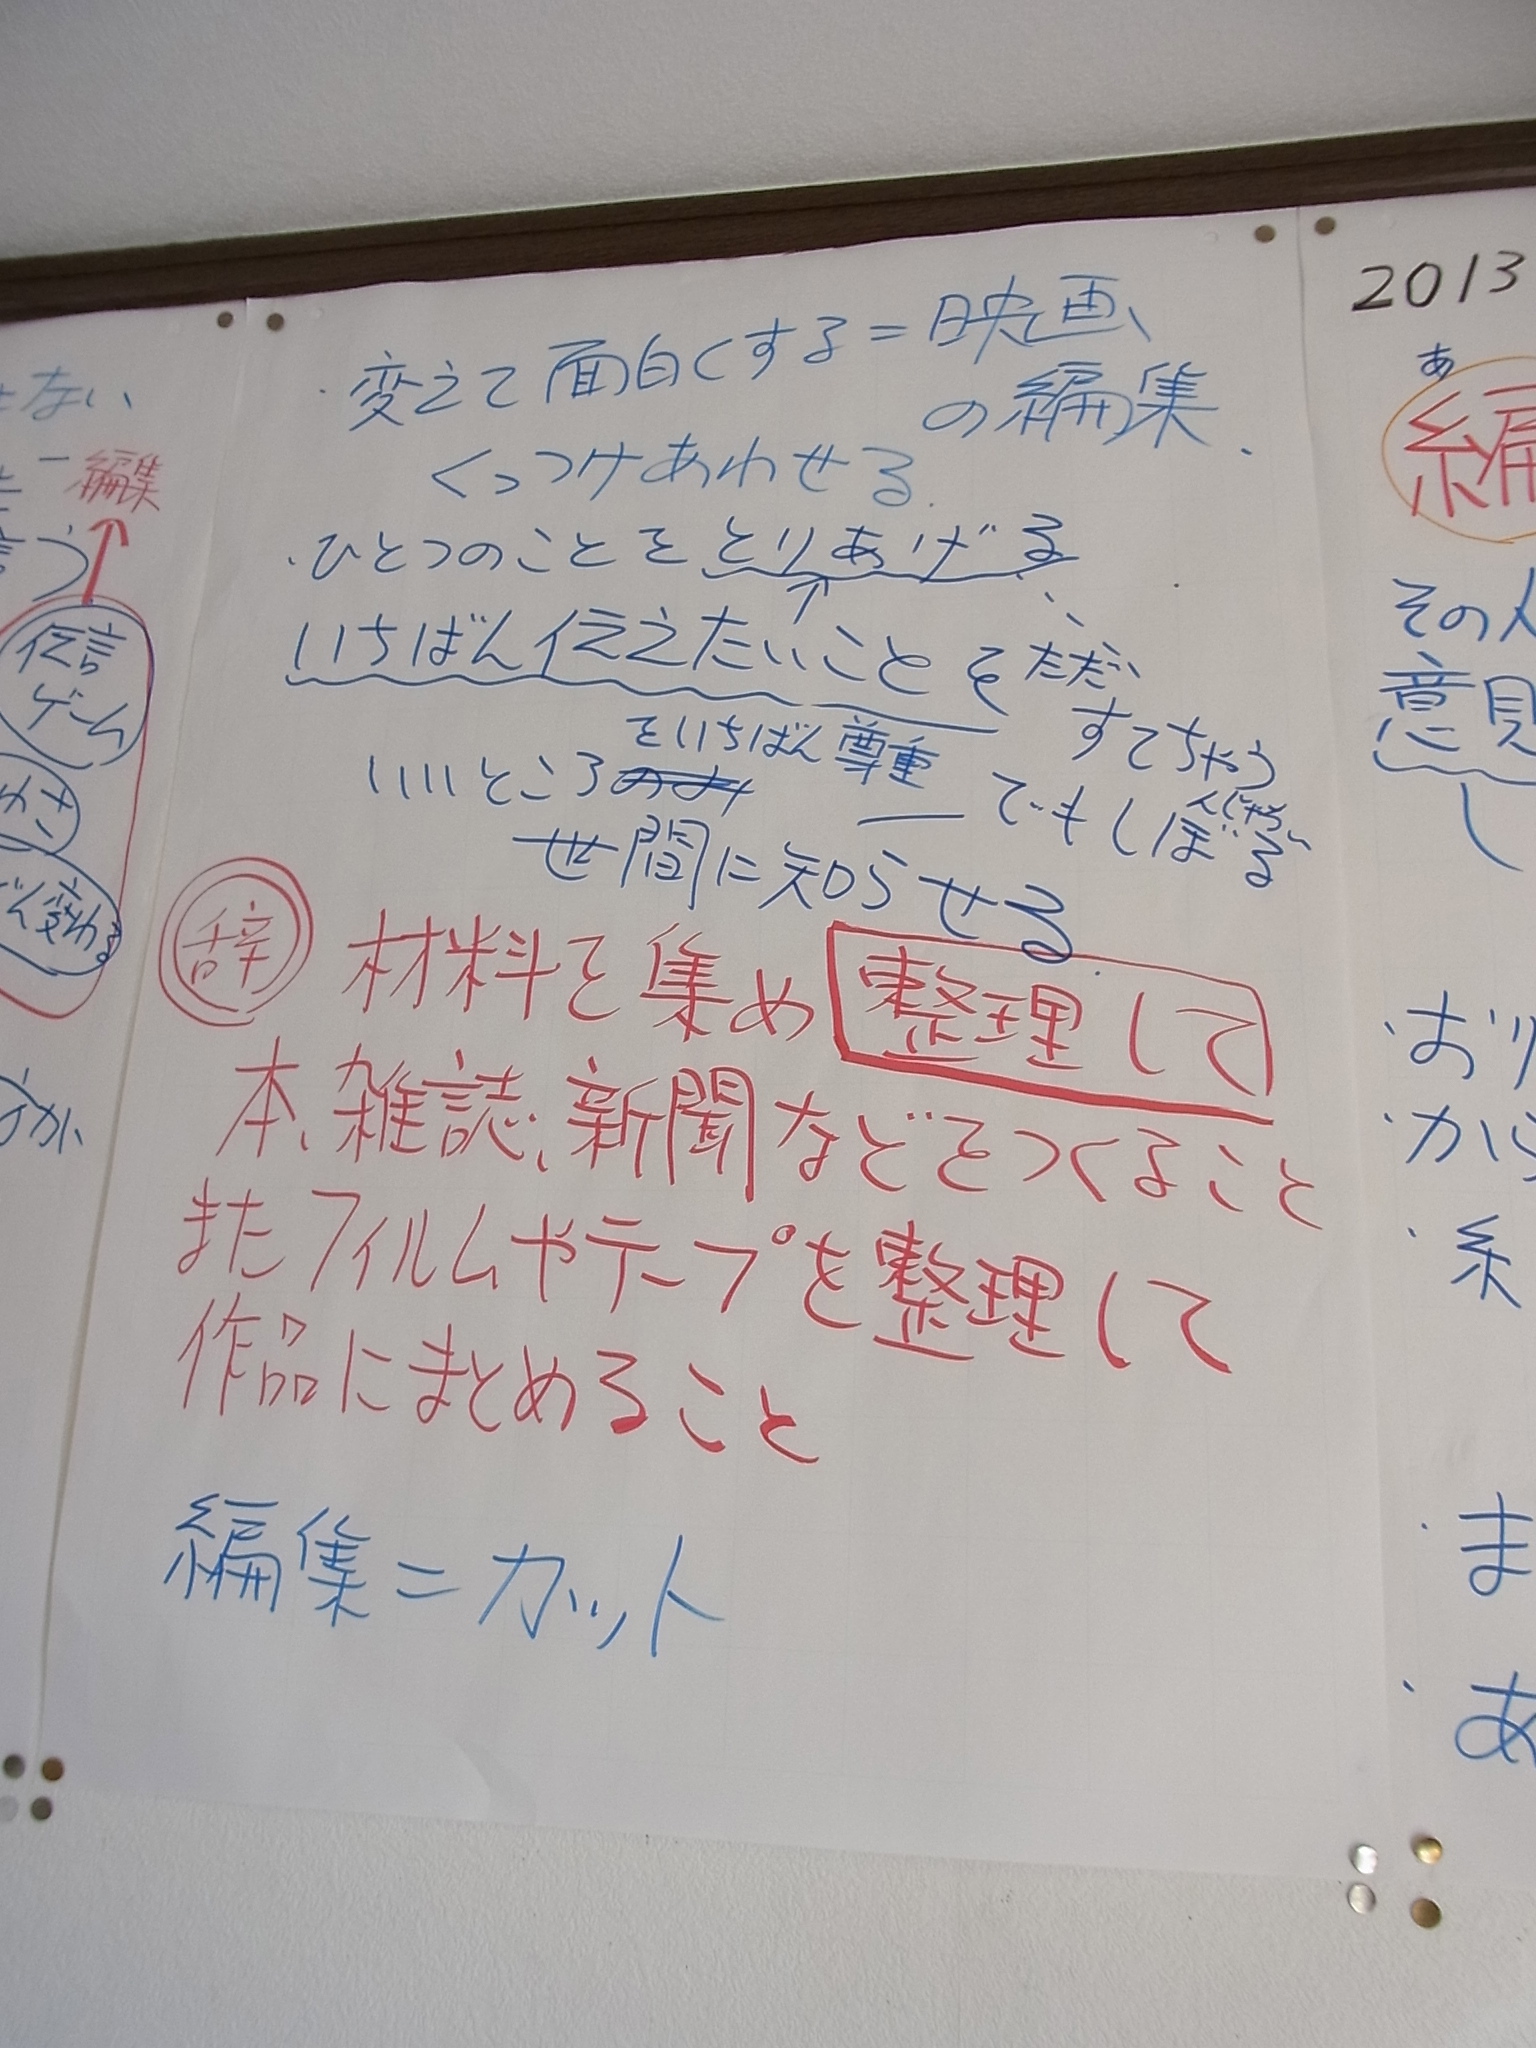 せない
編集
言う
伝言
ゲーム
わさ
変わる
・変えて面白くする＝映画、
の編集.
くっつけあわせる.
・ひとつのことをとりあげる
↑
いちばん伝えたいことを
ただ
すてちゃう
んじゃない
でもしぼる
をいちばん尊重
いいところ
世間に知らせる
辞 材料を集め整理して
本、雑誌、新聞などをつくること
またフィルムやテープを整理して
作品にまとめること
編集＝カット
2013
あ
編
その人
意見
し
・お
・から
・糸
・ま
・あ